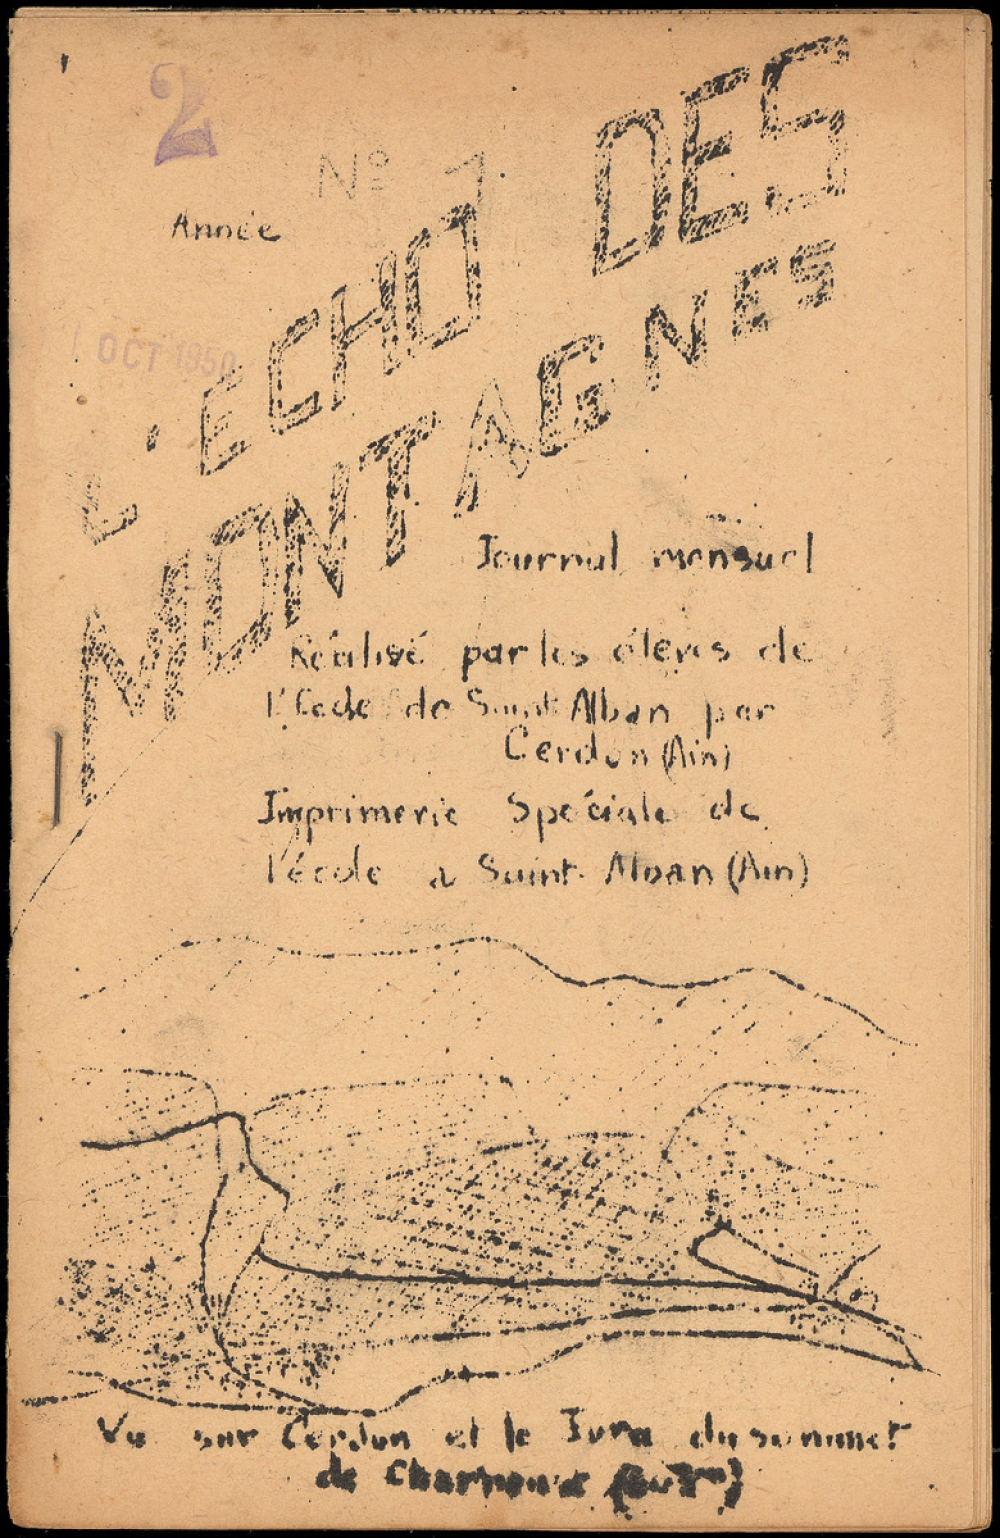 2
Nº 1
Année
OCT 1950
L'ÉCHO DES
MONTAGNES
Journal mensuel
Réalisé par les élèves de
l'Ecole de Saint Alban par
Cerdon (Ain)
Imprimerie Spéciale de
l'école a Saint-Alban (Ain)
Vu sur Cerdon et le Jura du sommet
de